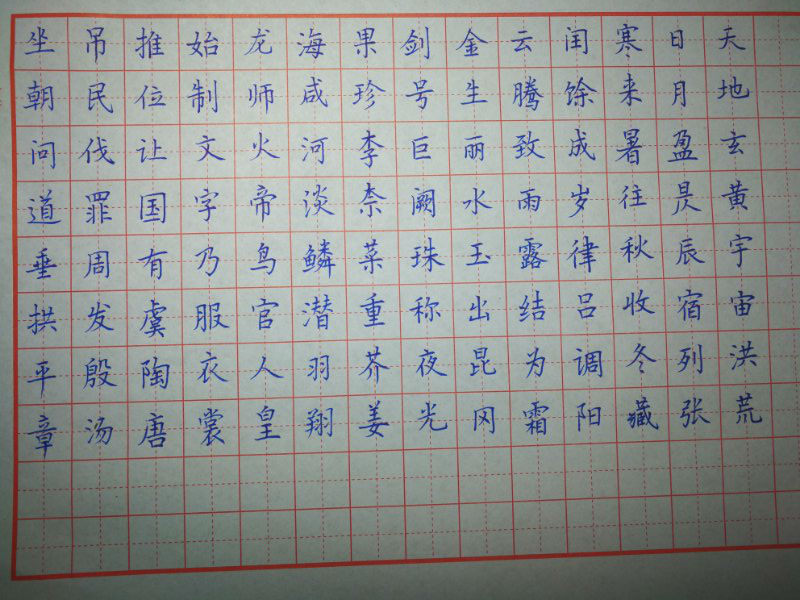 天地玄黄宇宙洪荒
日月盈昃辰宿列张
寒来暑往秋收冬藏
闰馀成岁律吕调阳
云腾致雨露结为霜
金生丽水玉出昆冈
剑号巨阙珠称夜光
果珍李奈菜重芥姜
海咸河淡鳞潜羽翔
龙师火帝鸟官人皇
始制文字乃服衣裳
推位让国有虞陶唐
吊民伐罪周发殷汤
坐朝问道垂拱平章